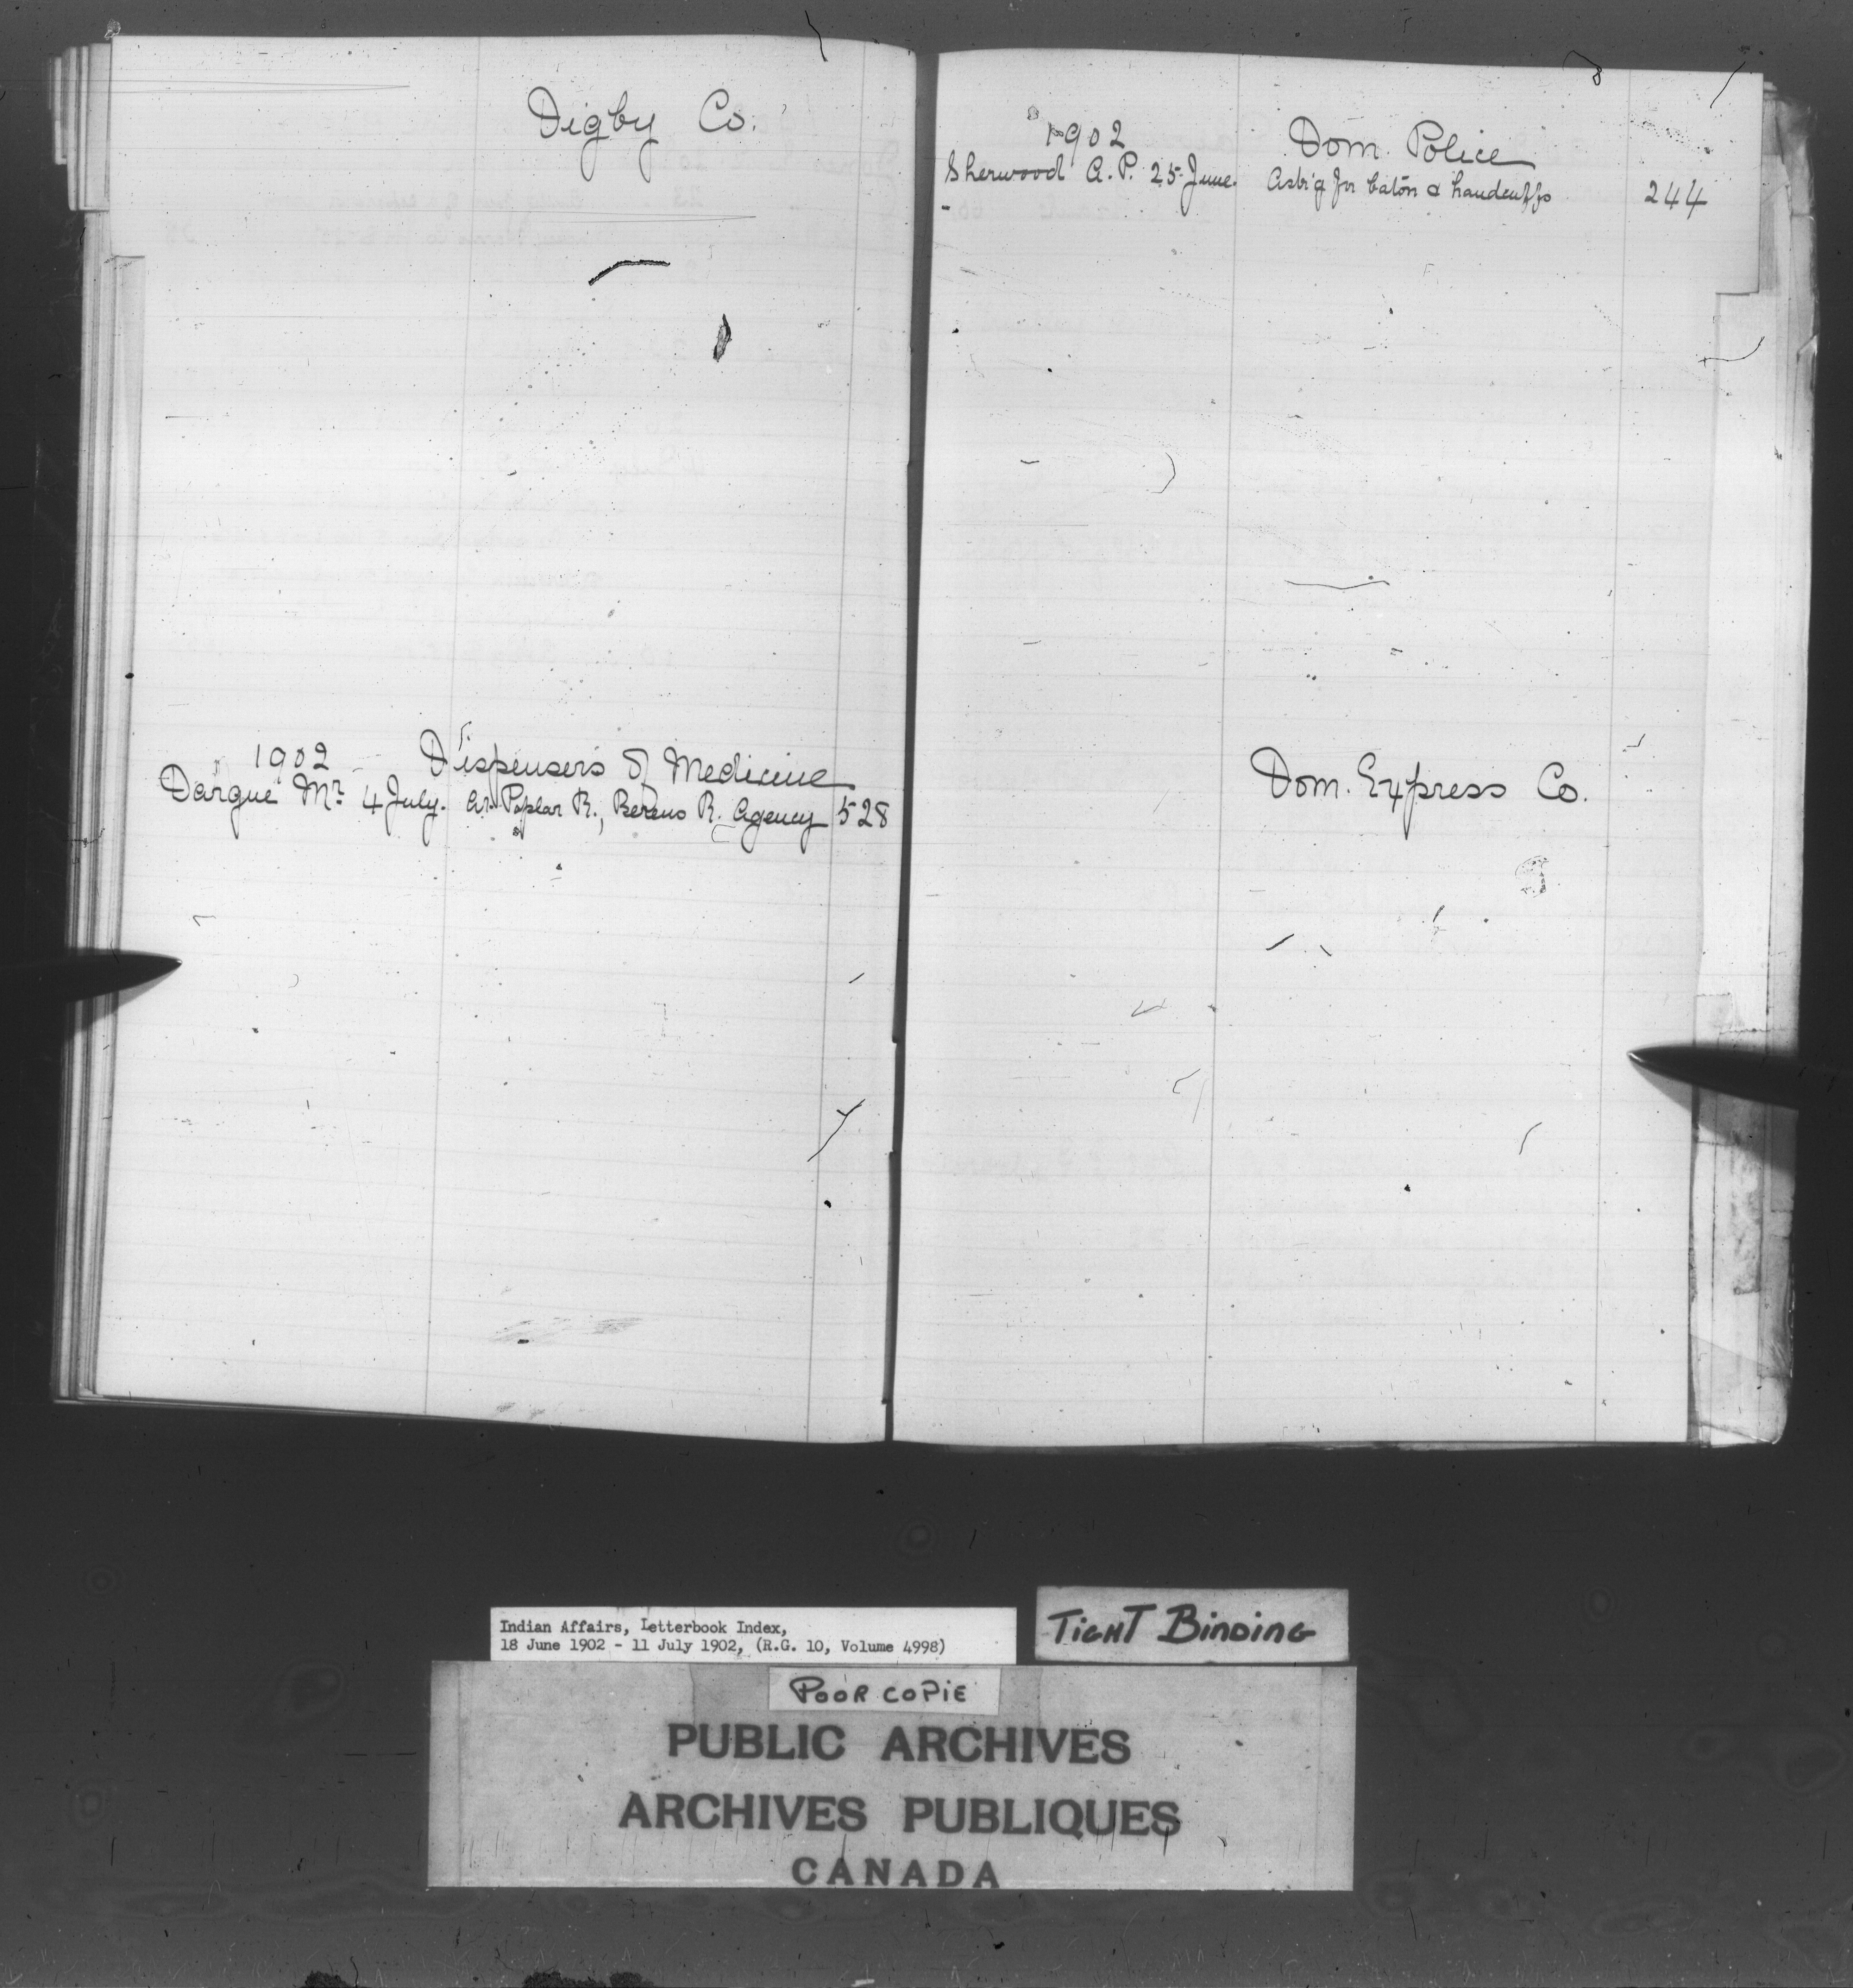 Digby Co.
1902 Dispensers of Medicine
Dargue Mr. 4 July. At Poplar R., Berens R. Agency 528
1902 Dom. Police
Sherwood A.P. 25 June. Ask'g for baton & handcuffs 244
Dom. Express Co.
Indian Affairs, Letterbook Index,
18 June 1902 - 11 July 1902, (R.G. 10, Volume 4998)
TIGHT BINDING
POOR COPIE
PUBLIC ARCHIVES
ARCHIVES PUBLIQUES
CANADA